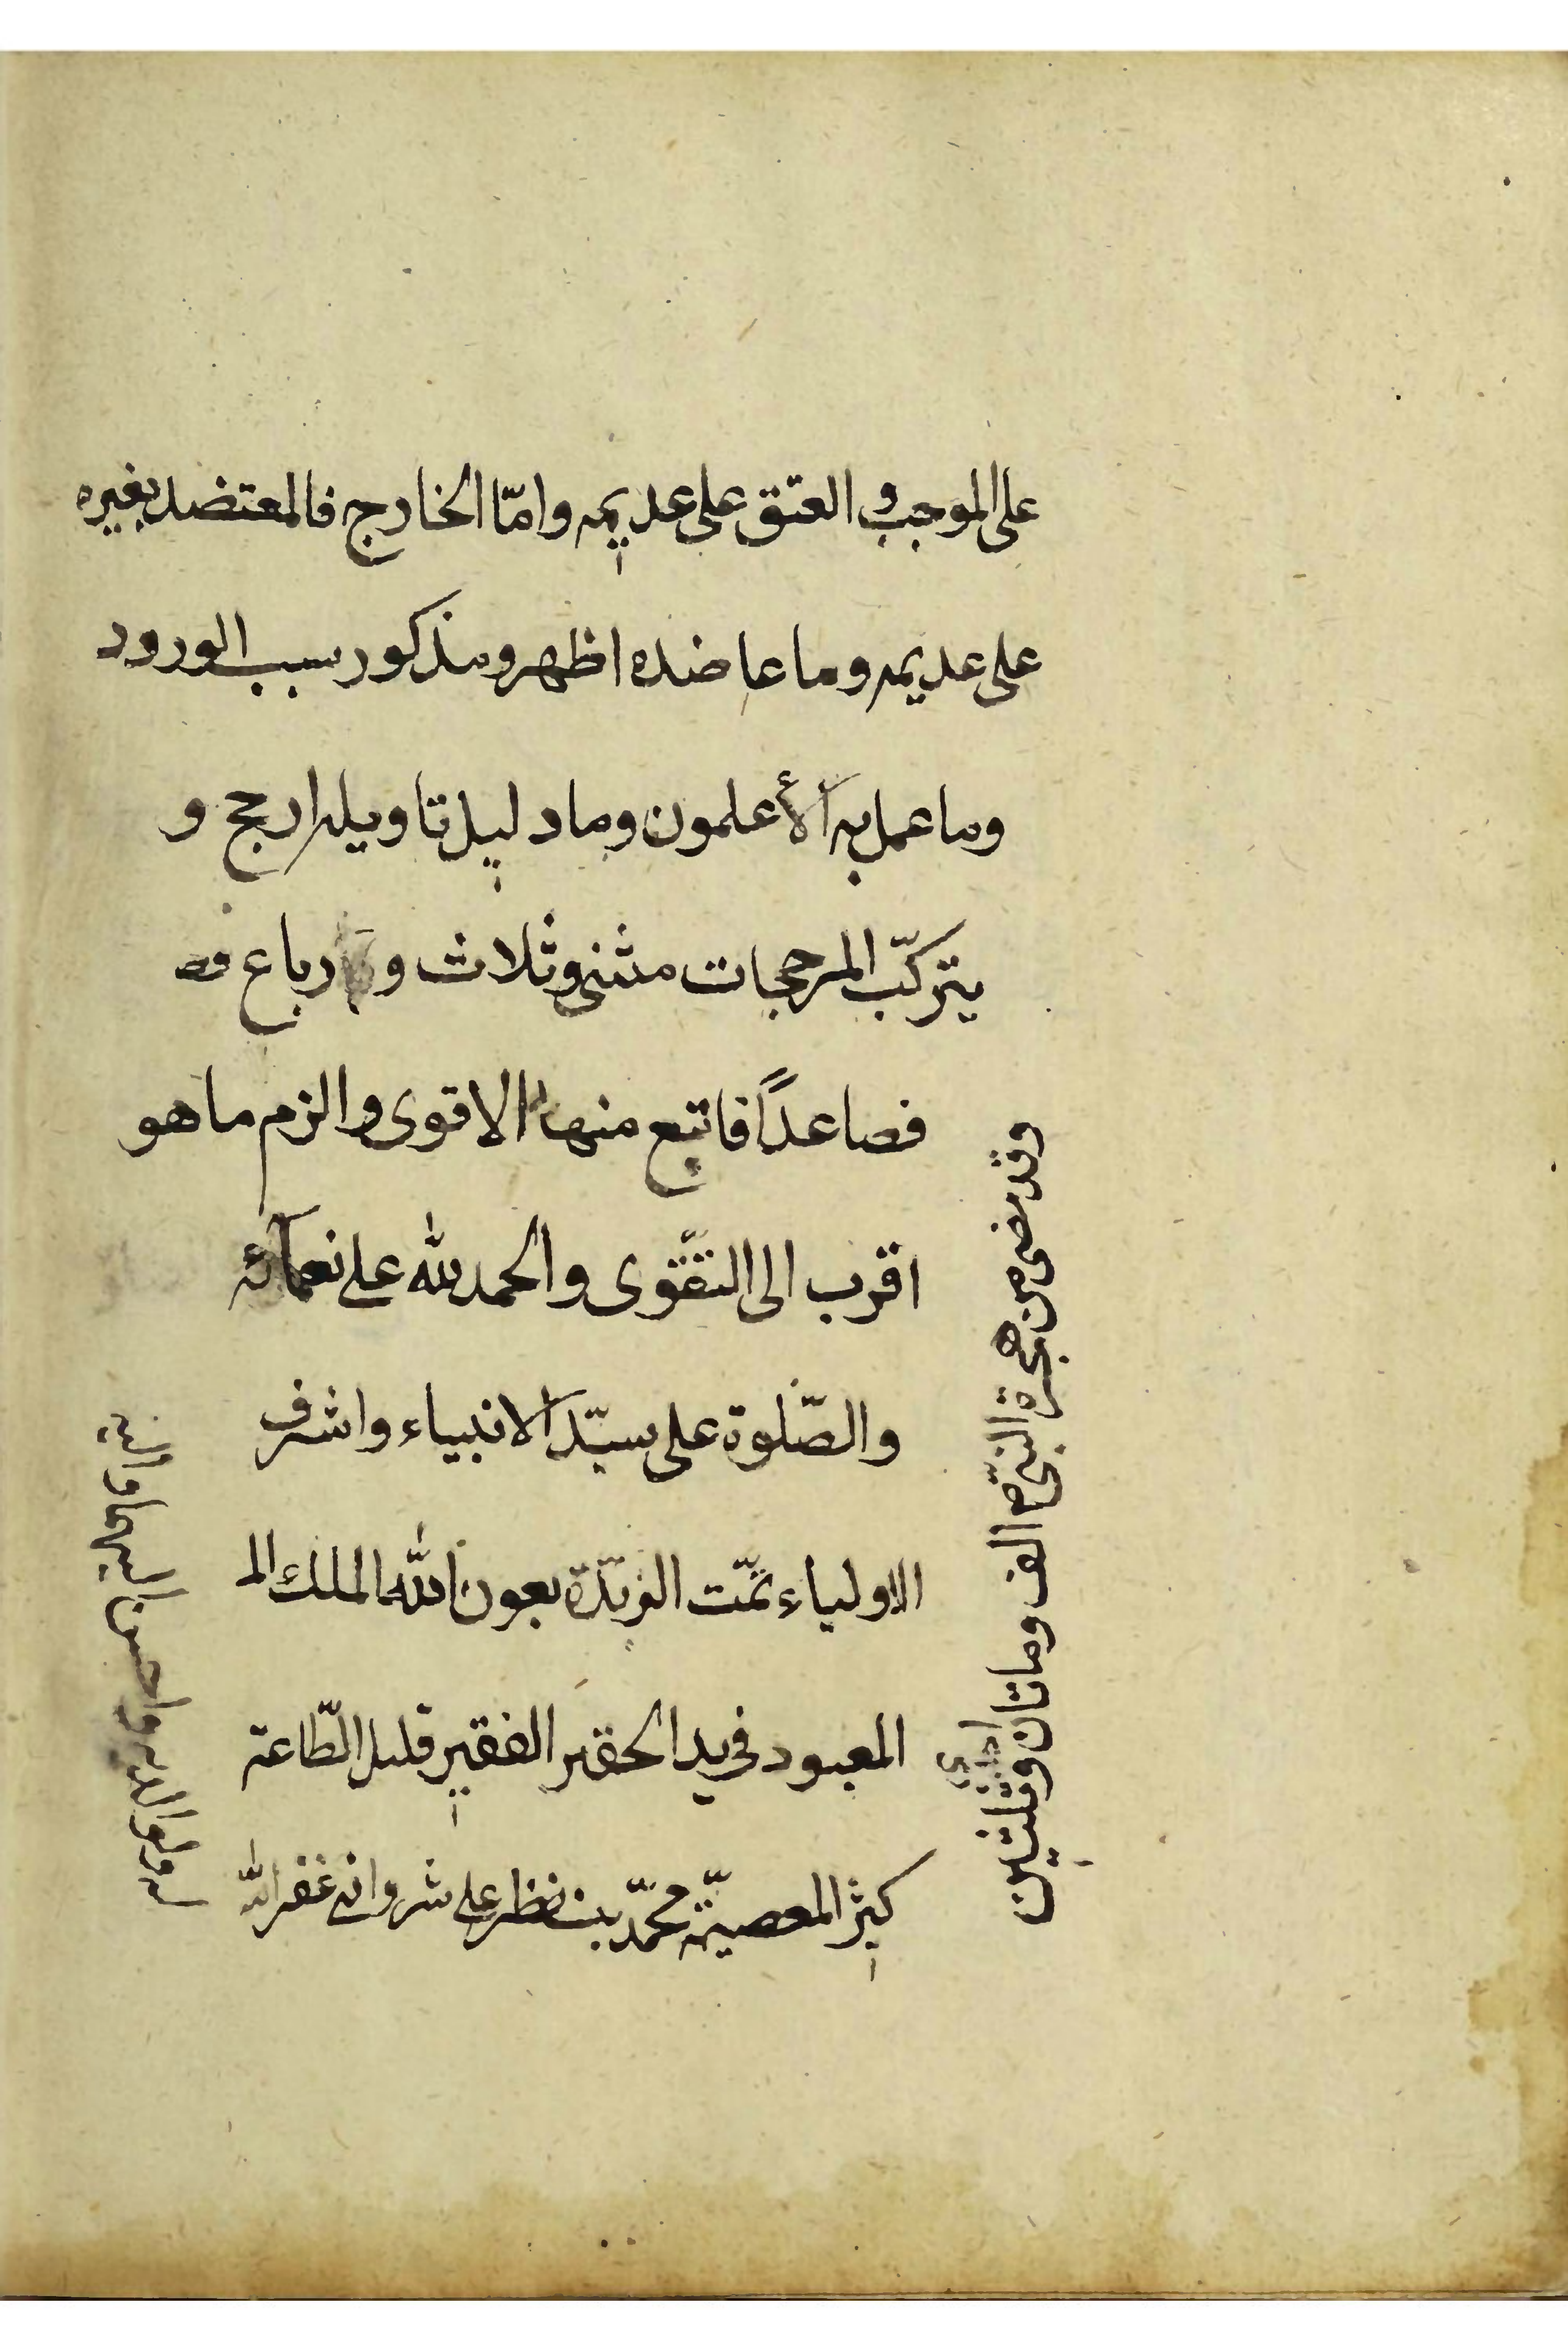 على الموجب و العتق على عديمه وامّا الخارج فالمعتضد بغيره
على عديمه وما عاضده اظهر ومذكور سبب الورود
وما عمل به الأعلمون وما دليل تاويله ارجح و
يتركّب المرجحات مثنى وثلاث و رباع فصا
فصاعداً فاتبع منها الاقوى والزم ما هو
اقرب الى التقّوى والحمد لله على نعمآئه
والصّلوة على سيّد الانبياء واشرف
الاولياء تمّت الزبدة بعون الله الملك الم
المعبود في يد الحقير الفقير قليل الطّاعة
كثير المعصيّة محمّد بن نظر على شروانى غفر الله
له ولوالديه واحسن اليهما واليه
وقد مضى من هجرة النبىّ ص الف وماتان وثلثين
احدى